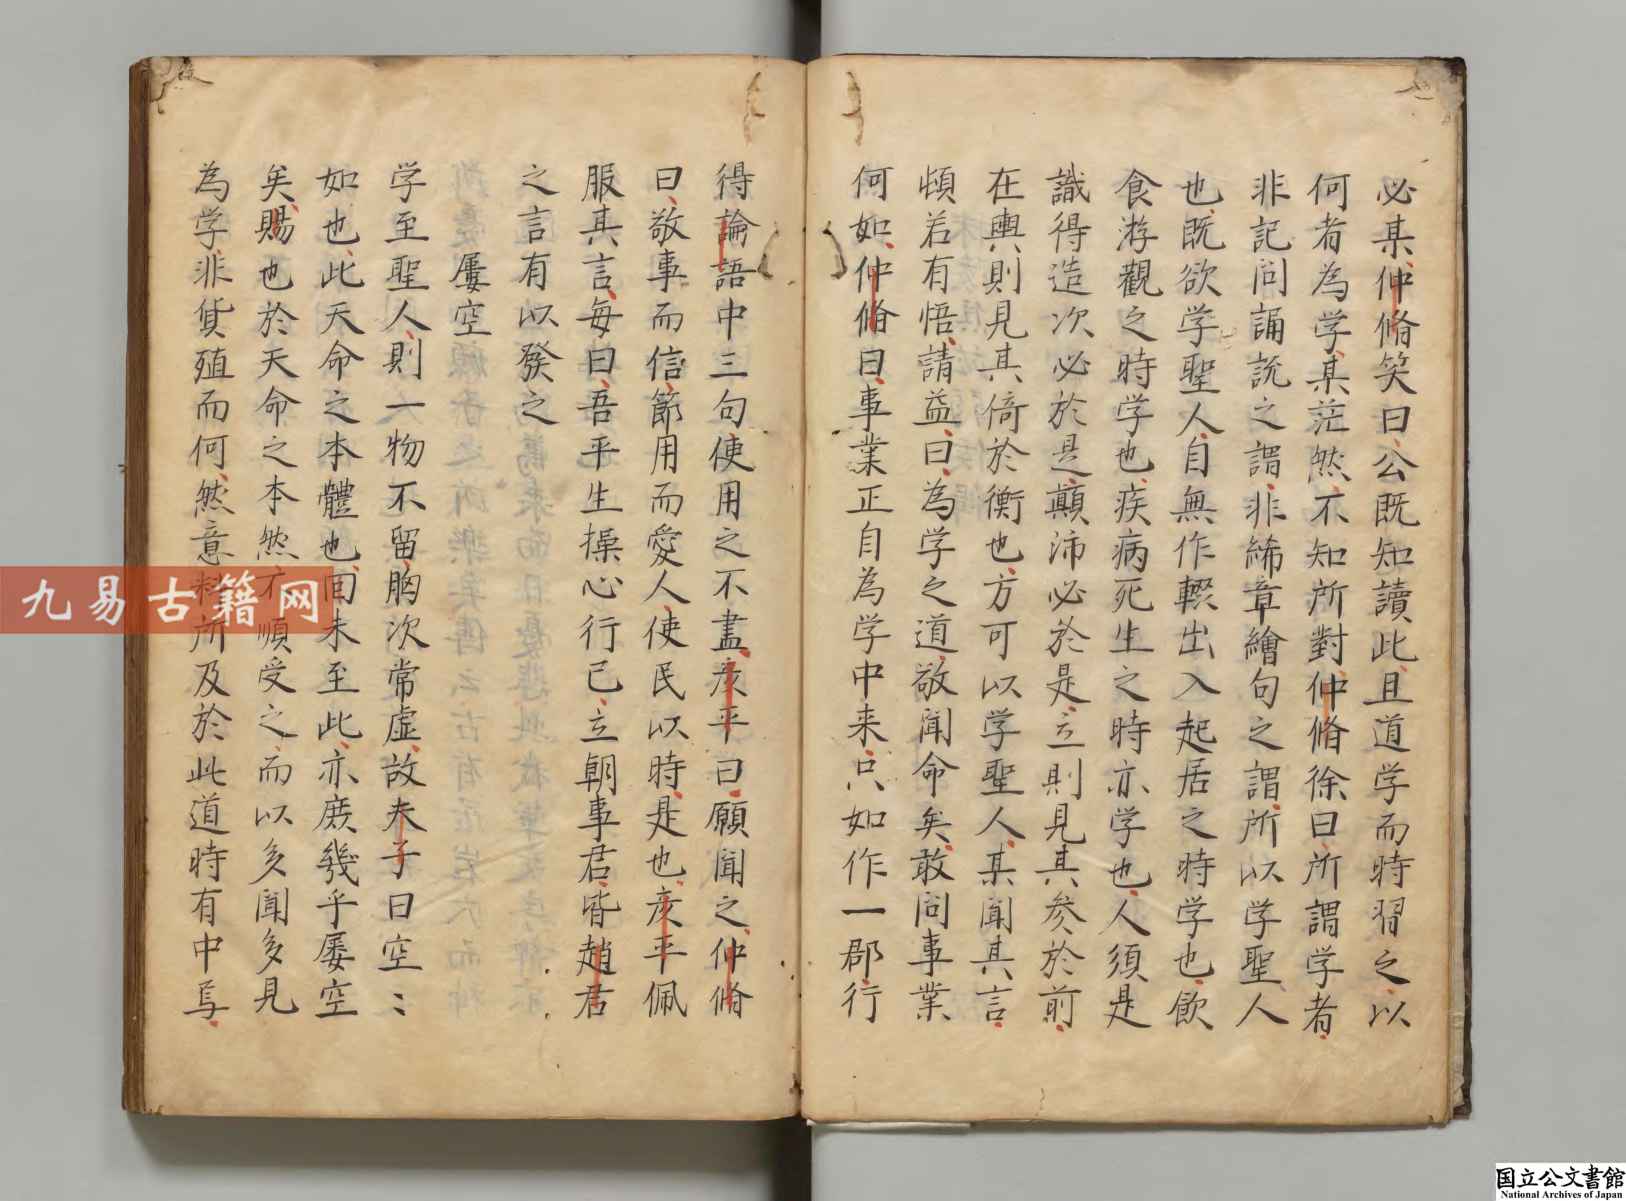 必某仲脩笑曰公既知讀此且道学而時習之以
何者為学某茫然不知所對仲脩徐曰所謂学者
非記问誦説之謂非絺章繪句之謂所以学聖人
也既欲学聖人自無作輟出入起居之時学也飲
食游觀之時学也疾病死生之時亦学也人須是
識得造次必於是顛沛必於是立則見其参於前
在輿則見其倚於衡也方可以学聖人某聞其言
頓若有悟請益曰為学之道敬聞命矣敢问事業
何如仲脩曰事業正自為学中来只如作一郡行
得論語中三句使用之不盡彦平曰願聞之仲脩
曰敬事而信節用而愛人使民以時是也彦平佩
服其言每曰吾平生操心行已立朝事君皆趙君
之言有以發之
屡空
学至聖人則一物不留胸次常虚故夫子曰空〻
如也此天命之本體也回未至此亦庶幾乎屡空
矣賜也於天命之本然不順受之而以多聞多見
為学非貨殖而何然意料所及於此道時有中焉
九易古籍网
国立公文書館
National Archives of Japan